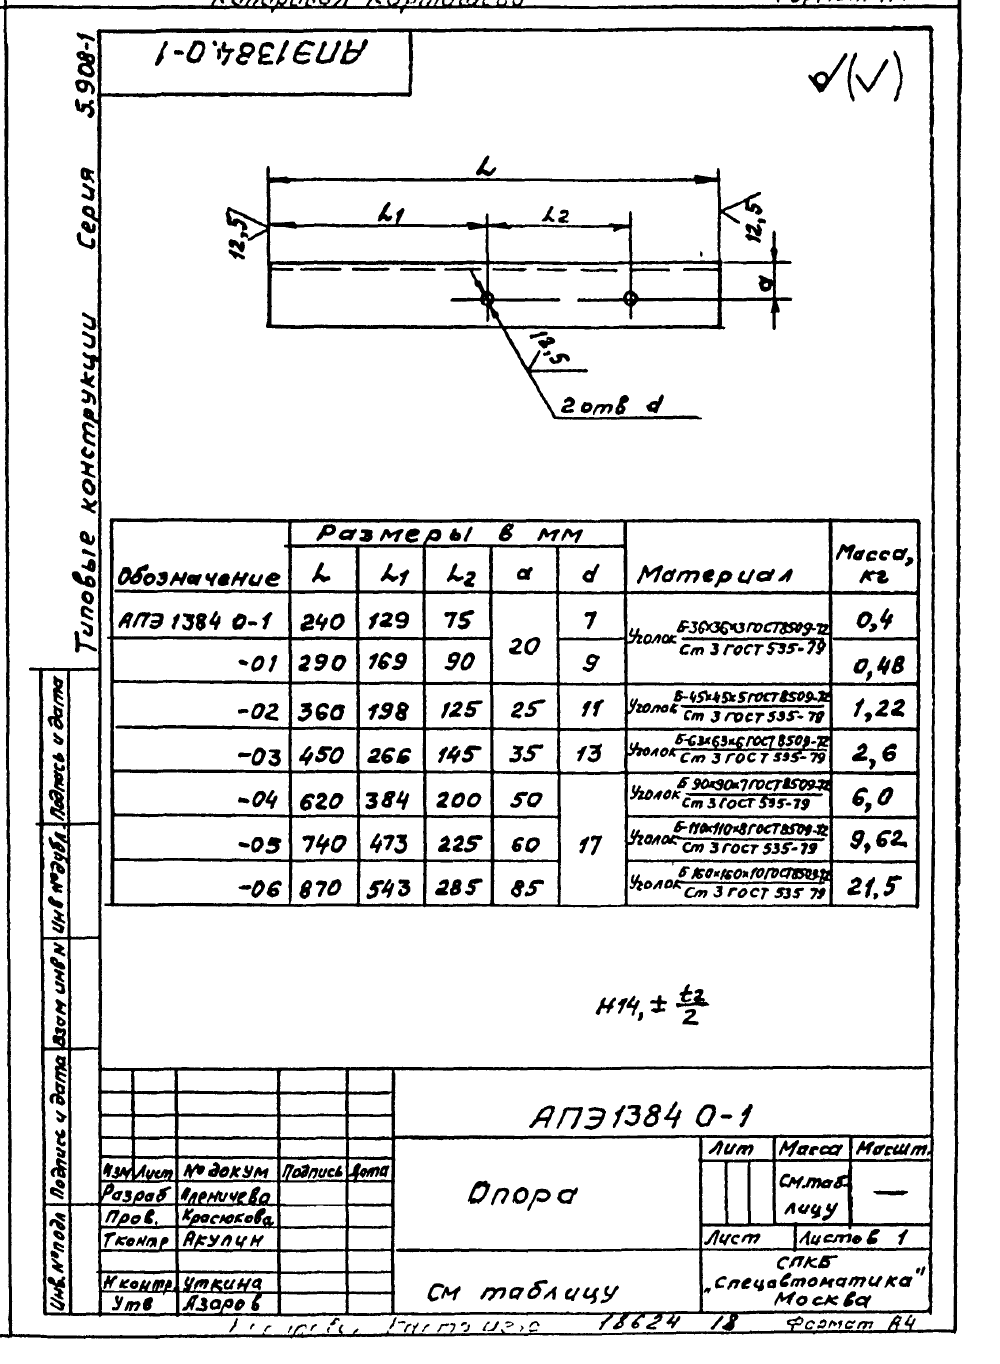 Копировал
Типовые конструкции Серия 5.908-1
АПЭ1384.0-1
L
L1 L2
12,5
12,5
a
12,5
2 отв d
Обозначение Размеры в мм Материал Масса, кг
L L1 L2 a d
АПЭ 1384 0-1 240 129 75 20 7 Уголок Б-36×36×3 ГОСТ 8509-72 / Ст 3 ГОСТ 535-79 0,4
-01 290 169 90 9 0,48
-02 360 198 125 25 11 Уголок Б-45×45×5 ГОСТ 8509-72 / Ст 3 ГОСТ 535-79 1,22
-03 450 266 145 35 13 Уголок Б-63×63×6 ГОСТ 8509-72 / Ст 3 ГОСТ 535-79 2,6
-04 620 384 200 50 17 Уголок Б 90×90×7 ГОСТ 8509-72 / Ст 3 ГОСТ 535-79 6,0
-05 740 473 225 60 Уголок Б-110×110×8 ГОСТ 8509-72 / Ст 3 ГОСТ 535-79 9,62
-06 870 543 285 85 Уголок Б 160×160×10 ГОСТ 8509-72 / Ст 3 ГОСТ 535 79 21,5
H14, ± t2/2
Подпись и дата
Инв № дубл.
Взам инв N
Подпись и дата
Инв. № подл
АПЭ1384 0-1
Изм Лист № докум Подпись Дата
Разраб Аленичева
Пров. Красюкова
Т контр Акулин
Н контр. Уткина
Утв Азаров
Опора
См таблицу
Лит Масса Масшт.
См. таб-
лицу —
Лист Листов 1
СПКБ
„Спецавтоматика"
Москва
18624 18 Формат А4